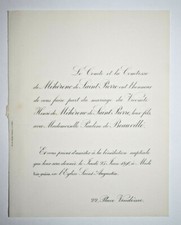 Le Comte et la Comtesse
de Méhérenc de Saint-Pierre ont l'honneur
de vous faire part du mariage du Vicomte
de Méhérenc de Saint-Pierre, leur fils
avec Mademoiselle Pauline de
Et vous prient d'assister à la bénédiction nuptiale
qui leur sera donnée le Jeudi Juin à Midi
en l'Église Saint-Augustin
Place Vendôme